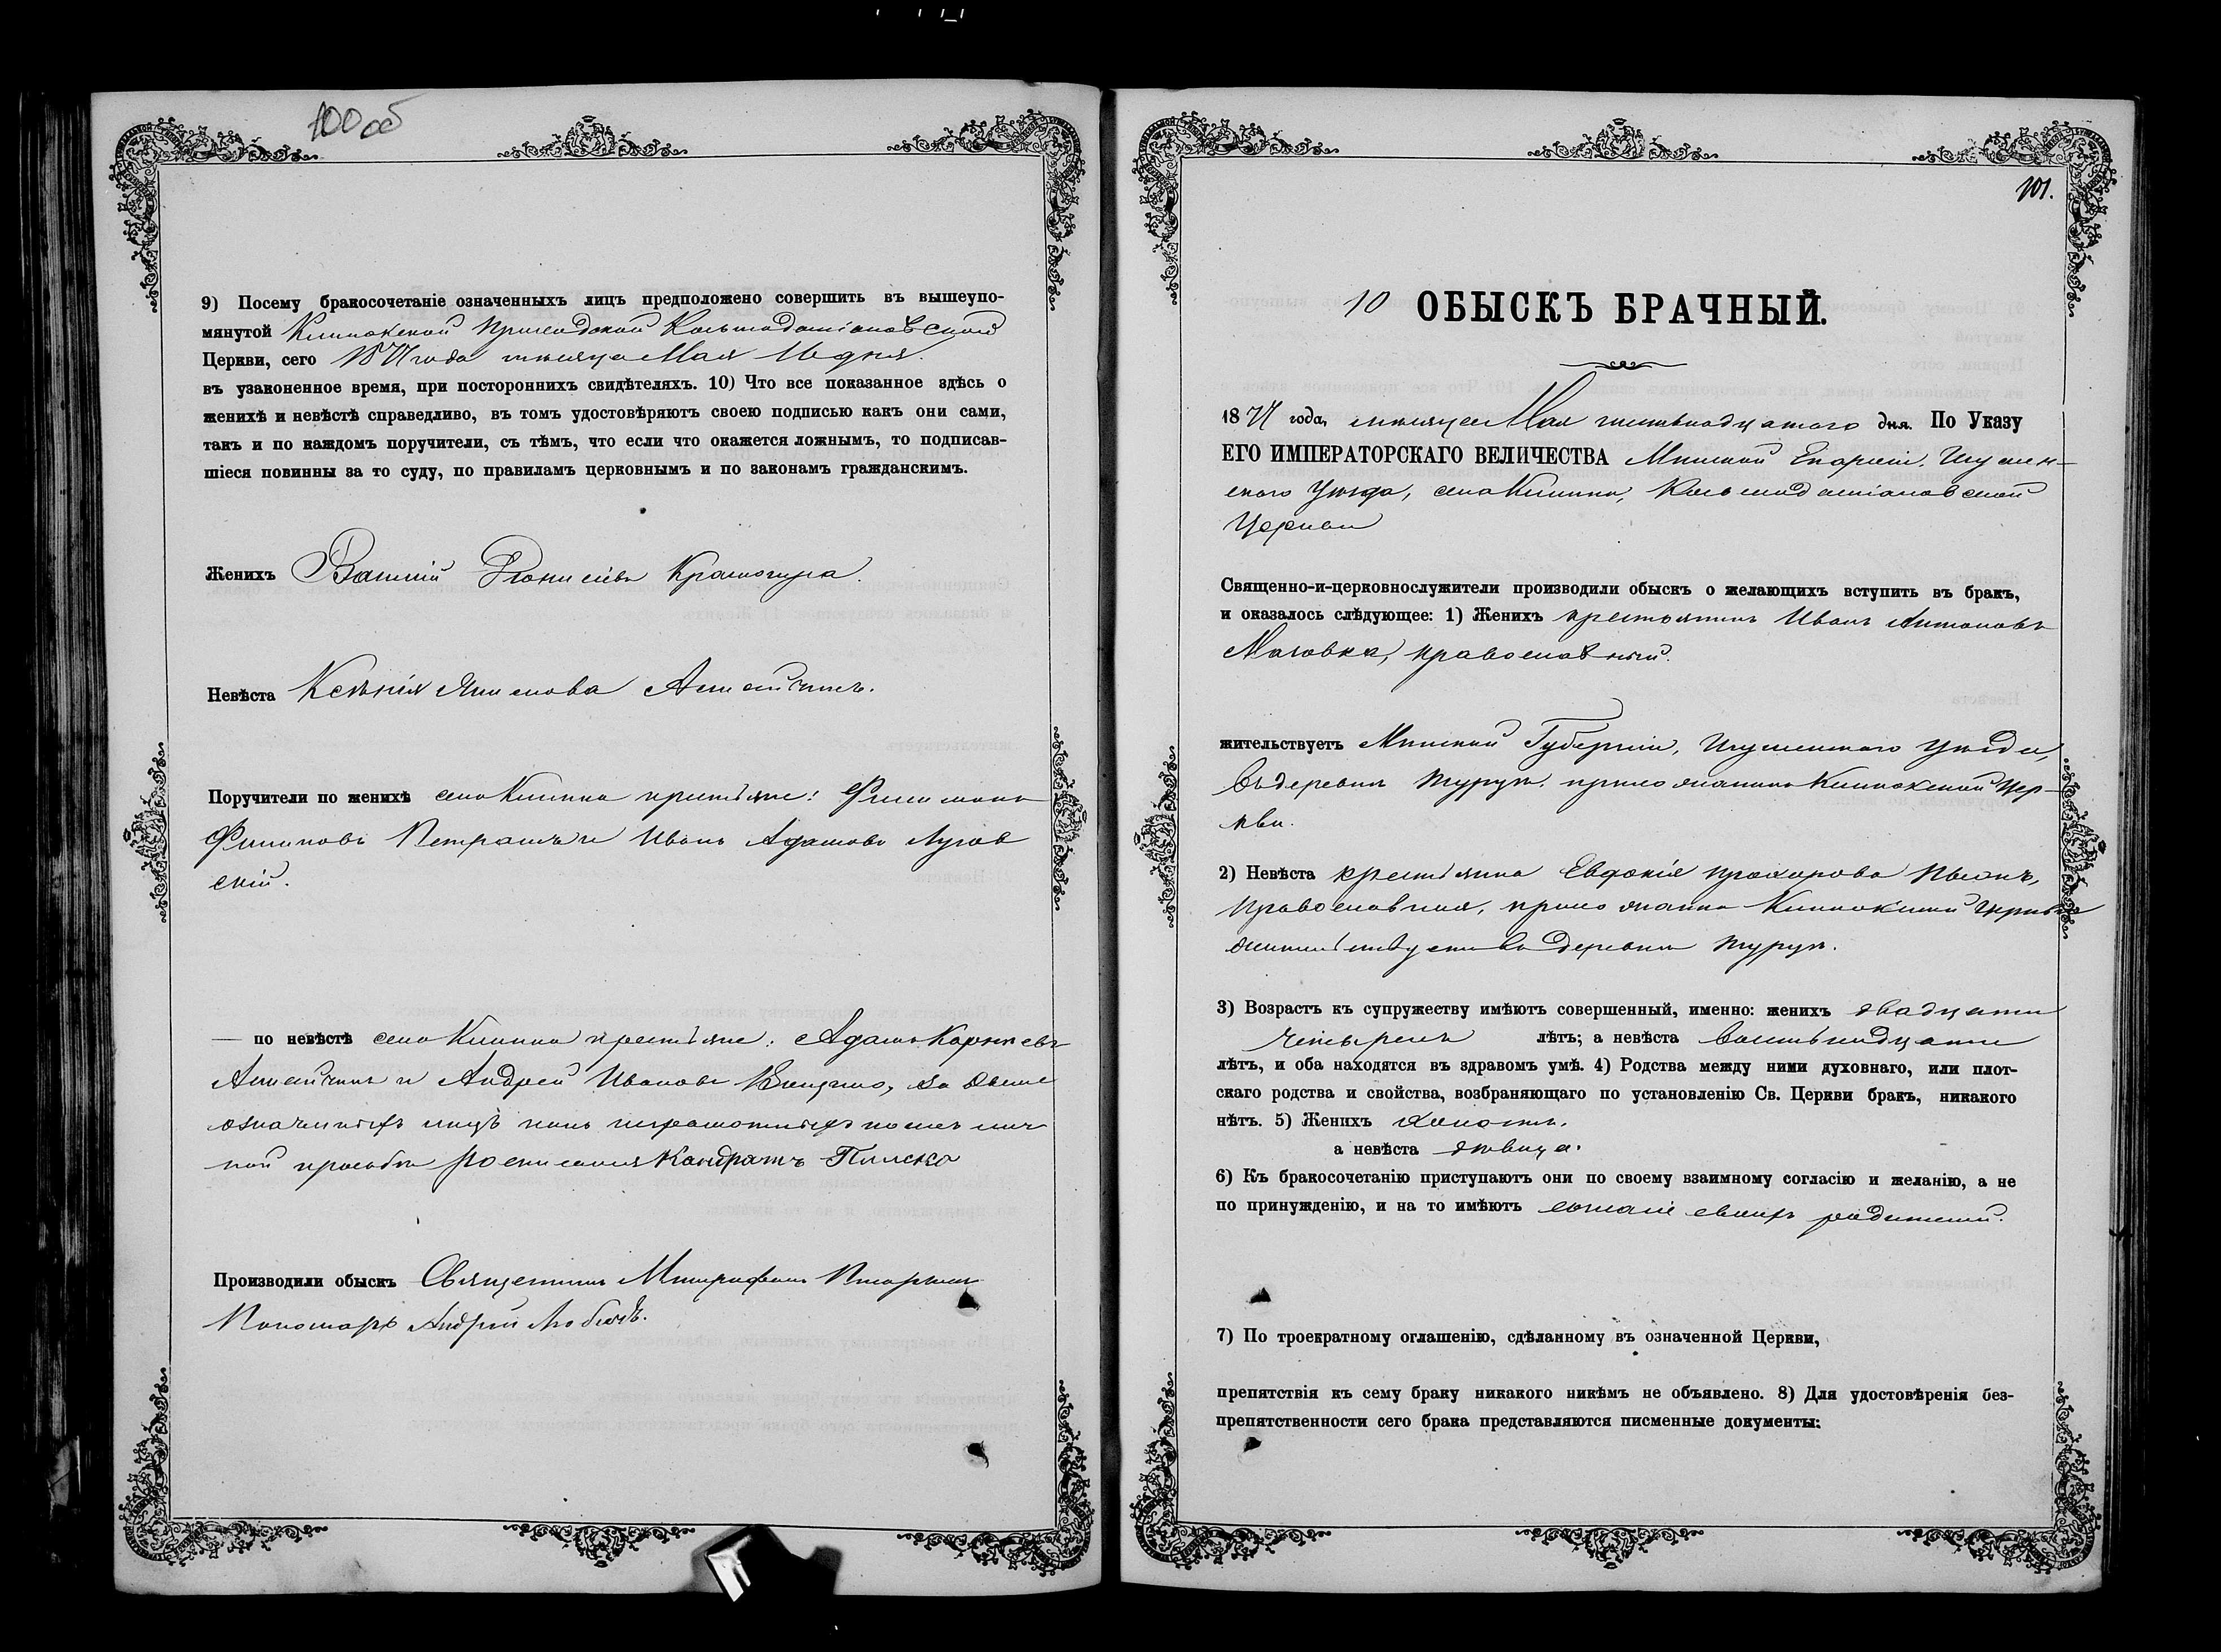 100 об
9) Посему бракосочетаніе означенныхъ лицъ предположено совершить въ вышеупо-
мянутой Клинокской приходской Косьмодаміановской
Церкви, сего 1871 года мѣсяца Мая дня.
въ узаконенное время, при постороннихъ свидѣтеляхъ. 10) Что все показанное здѣсь о
женихѣ и невѣстѣ справедливо, въ томъ удостовѣряютъ своею подписью какъ они сами,
такъ и по каждомъ поручители, съ тѣмъ, что если что окажется ложнымъ, то подписав-
шіеся повинны за то суду, по правиламъ церковнымъ и по законамъ гражданскимъ.
Женихъ
Невѣста Ксенія
Поручители по женихѣ села Клинка крестьяне:
Петрашъ и Иванъ Адамовъ Лугов
скій.
— по невѣстѣ села Клинка крестьяне: Адамъ
и Андрей Ивановъ за
означенныхъ лицъ какъ неграмотныхъ по ихъ лич
ной просьбѣ росписался Кондратъ
Производили обыскъ Священникъ Митрофанъ
Пономарь Андрей
101.
10 ОБЫСКЪ БРАЧНЫЙ.
1871 года, мѣсяца Мая дня. По Указу
ЕГО ИМПЕРАТОРСКАГО ВЕЛИЧЕСТВА Минской Епархіи, Игумен-
скаго Уѣзда, села Клинка, Косьмодаміановской
Церкви
Священно-и-церковнослужители производили обыскъ о желающихъ вступить въ бракъ,
и оказалось слѣдующее: 1) Женихъ крестьянинъ Иванъ Антоновъ
православный.
жительствуетъ Минской Губерніи, Игуменскаго уѣзда,
въ деревнѣ Турую прихожанинъ Клинокской Цер-
кви.
2) Невѣста крестьянка Евфокія Прохорова
Православная, прихожанка Клинокской Церкви
жительствуетъ въ деревнѣ
3) Возрастъ къ супружеству имѣютъ совершенный, именно: женихъ двадцати
четырехъ лѣтъ; а невѣста восьмнадцати
лѣтъ, и оба находятся въ здравомъ умѣ. 4) Родства между ними духовнаго, или плот-
скаго родства и свойства, возбраняющаго по установленію Св. Церкви бракъ, никакого
нѣтъ. 5) Женихъ холостъ.
а невѣста дѣвица.
6) Къ бракосочетанію приступаютъ они по своему взаимному согласію и желанію, а не
по принужденію, и на то имѣютъ согласіе своихъ родителей.
7) По троекратному оглашенію, сдѣланному въ означенной Церкви,
препятствія къ сему браку никакого никѣмъ не объявлено. 8) Для удостовѣренія без-
препятственности сего брака представляются писменные документы: